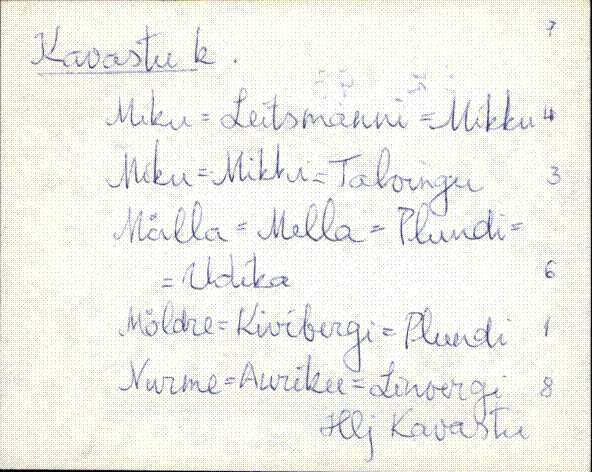 7
Kavastu k.
Miku = Leitsmanni = Mikku 4
Miku = Mikki = Talvingu 3
Mälla = Mella = Plundi =
= Udika 6
Möldre = Kivibergi = Plundi 1
Nurme = Auriku = Linvergi 8
Hlj Kavastu